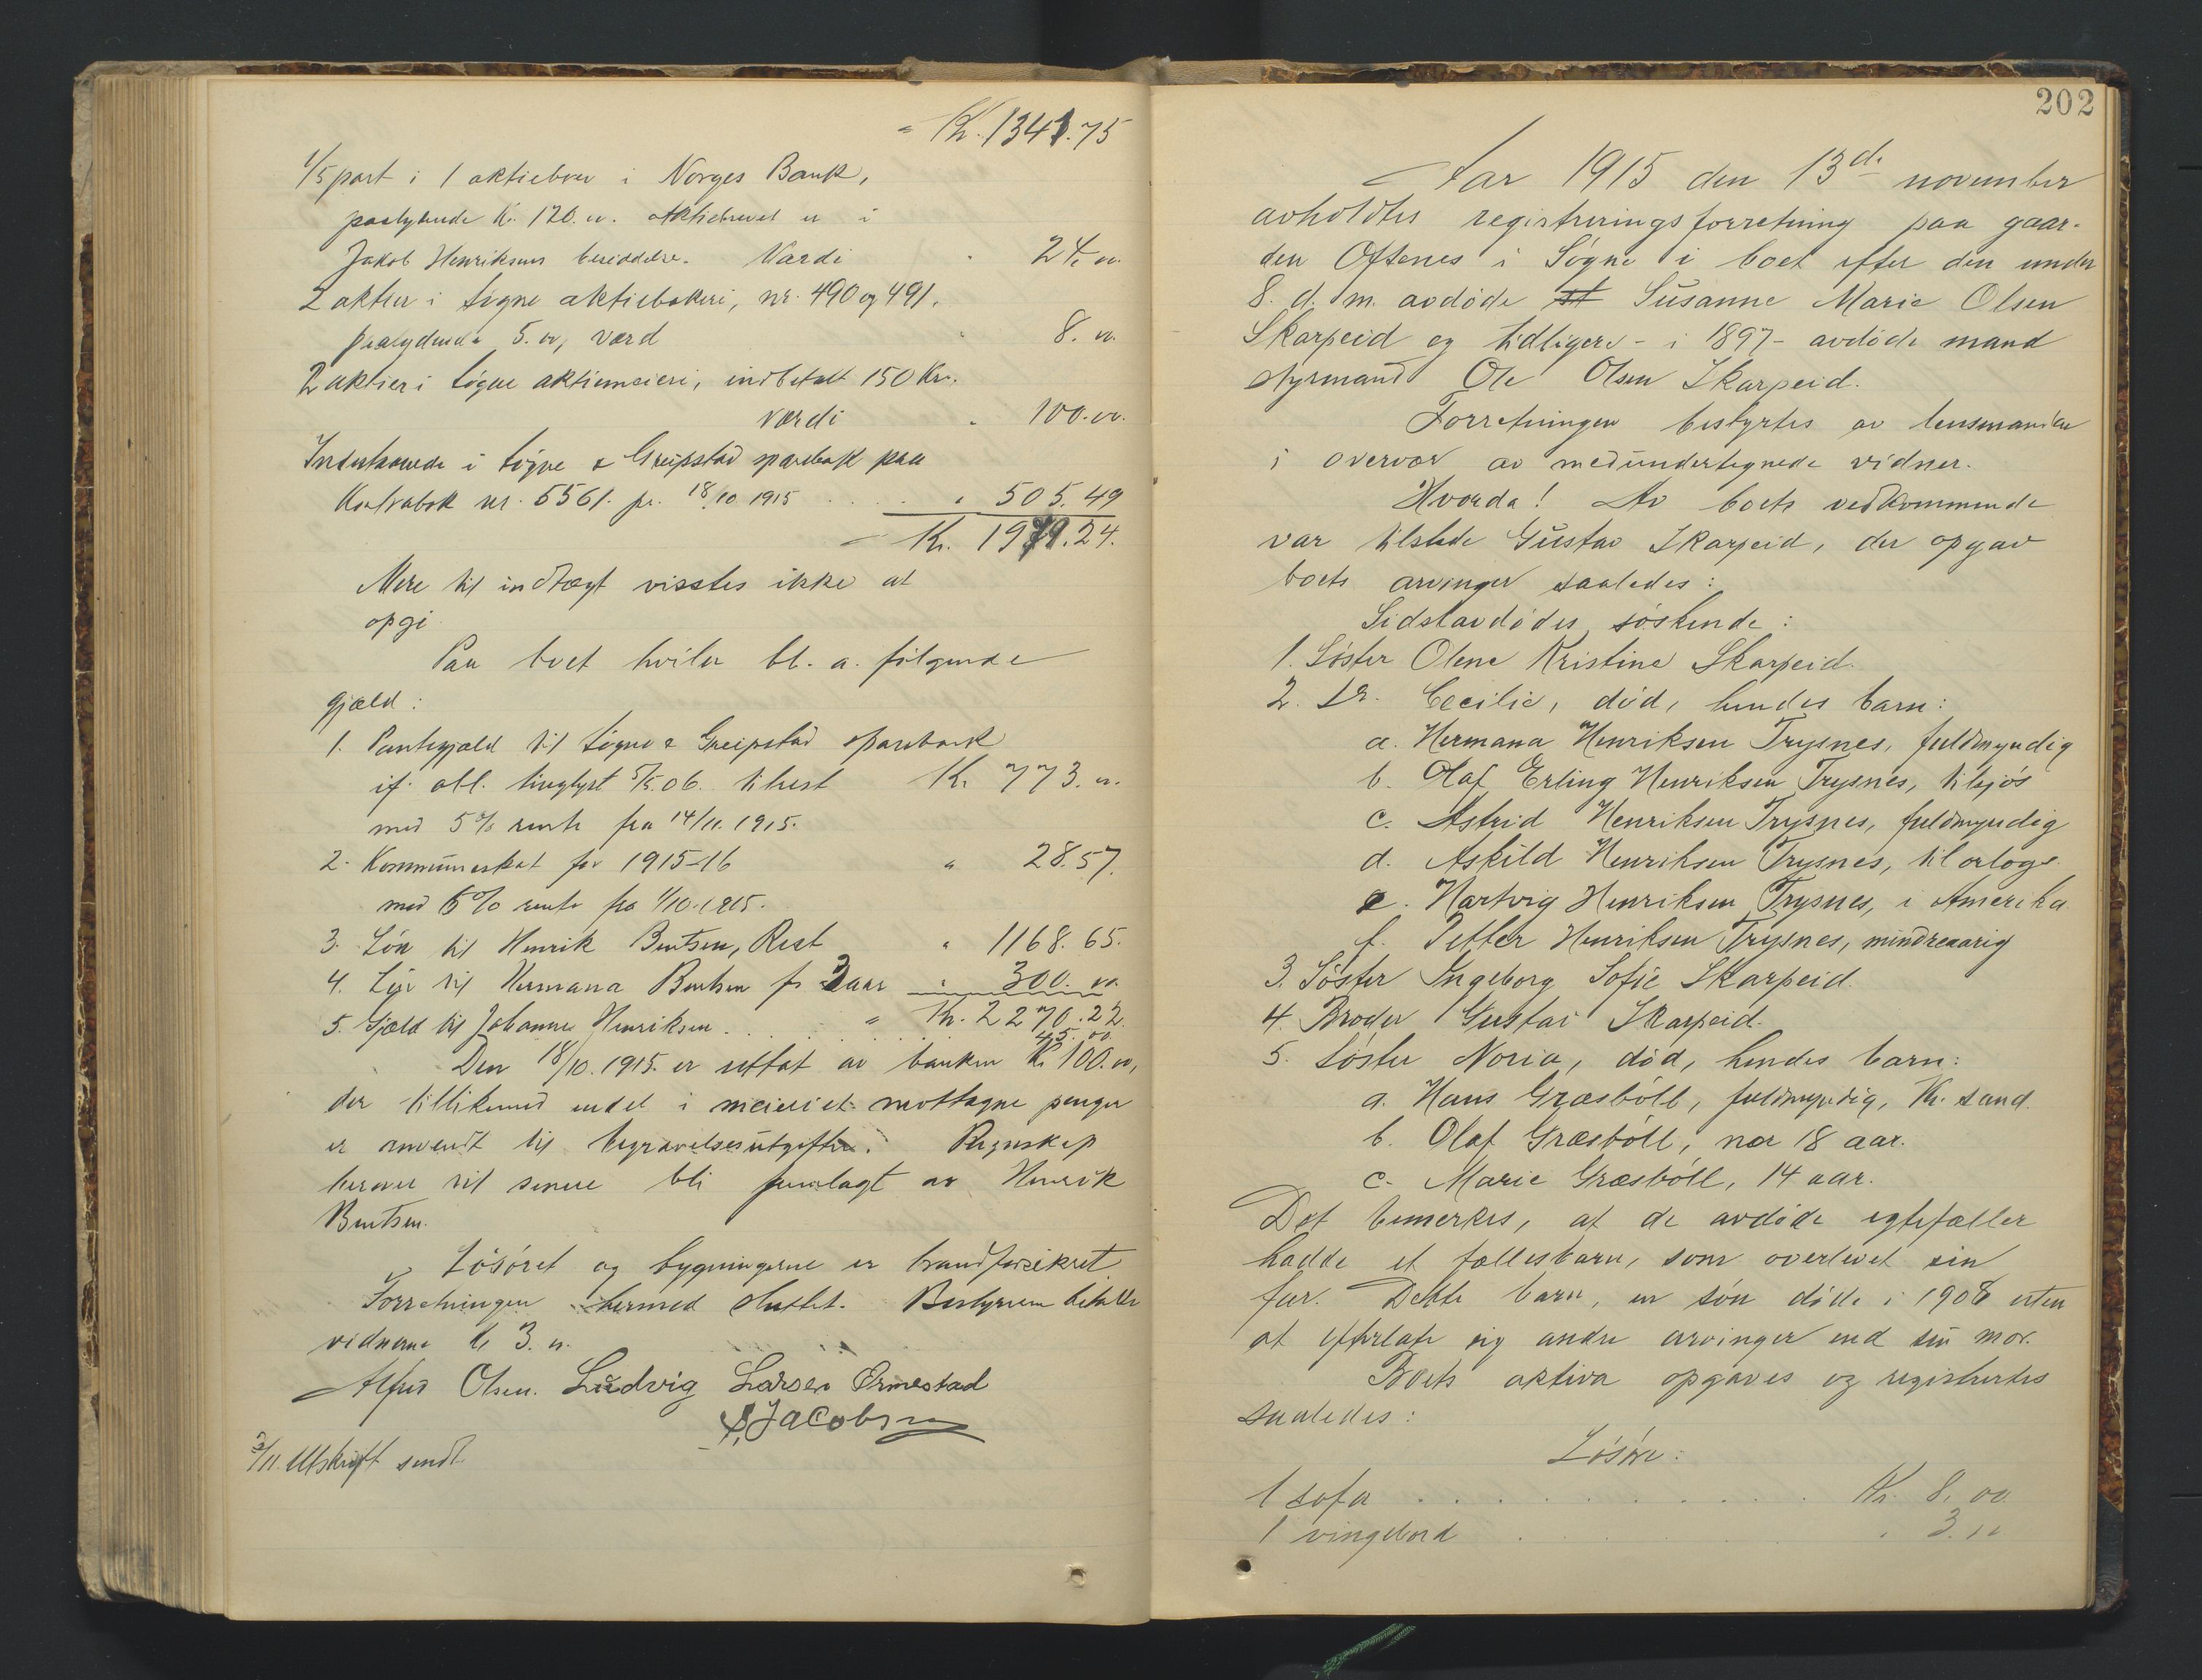 " Kr. 1341.75
1/5 part i 1 aktiebrev i Norges Bank,
paalydende Kr. 120.00. Aktiebrevet er i
Jakob Henriksens besiddelse. Værdi " 24.00.
2 aktier i Søgne aktiebakeri, nr. 490 og 491,
paalydende 5.00, værd " 8.00.
2 aktier i Søgne aktiemeieri, indbetalt 150 Kr.
værdi " 100.00.
Indestaaende i Søgne & Greipstad sparebank paa
Kontrabok nr. 5561. pr. 18/10 1915 . . . . " 505.49
Kr. 1979.24.
Mere til indtægt visstes ikke at
opgi.
Paa boet hviler bl. a. følgende
gjæld:
1. Pantegjæld til Søgne & Greipstad sparebank
if. obl. tinglyst 5/5.06. tilrest Kr. 773.00
med 5% rente fra 14/11. 1915.
2. Kommuneskat for 1915-16 " 28.57.
med 6% rente fra 1/10.1915.
3. Løn til Henrik Bentsen, Rest " 1168.65.
4. Løn til Hermana Bentsen for 3 aar " 300.00
" Kr. 2270.22
5. Gjæld til Johanne Henriksen . . . . 45.00
Den 18/10. 1915. er uttat av banken Kr. 100.00,
der tillikemed endel i meieriet mottagne penger
er anvendt til begravelsesutgifter. Regnskap
herover vil senere bli fremlagt av Henrik
Bentsen.
Løsøret og bygningerne er brandforsikret
Forretningen hermed sluttet. Bestyreren betalte
vidnerne Kr. 3.00.
Alfred Olsen. Ludvig Larsen Ormestad
S. Jacobsen
2/11. Utskrift sendt.
202
Aar 1915 den 13de november
avholdtes registreringsforretning paa gaar-
den Oftenes i Søgne i boet efter den under
8. d. m. avdøde st Susanne Marie Olsen
Skarpeid og tidligere - i 1897 - avdøde mand
styrmand Ole Olsen Skarpeid.
Forretningen bestyrtes av lensmanden
i overvær av medundertegnede vidner.
Hvorda! Av boets vedkommende
var tilstede Gustav Skarpeid, der opgav
boets arvinger saaledes:
Sidstavdødes søskende:
1. Søster Olene Kristine Skarpeid.
2. Do. Cecilie, død, hendes barn:
a. Hermana Henriksen Trysnes, fuldmyndig
b. Olaf Erling Henriksen Trysnes, tilsjøs
c. Astrid Henriksen Trysnes, fuldmyndig
d. Askild Henriksen Trysnes, til orlogs.
e. Hartvig Henriksen Trysnes, i Amerika
f. Petter Henriksen Trysnes, mindreaarig
3. Søster Ingeborg Sofie Skarpeid.
4. Broder Gustav Skarpeid.
5. Søster Noria, død, hendes barn:
a. Hans Græsbøll, fuldmyndig, Kr. sand.
b. Olaf Græsbøll, nær 18 aar.
c. Marie Græsbøll, 14 aar.
Det bemerkes, at de avdøde egtefæller
hadde et fællesbarn, som overlevet sin
far. Dette barn, en søn døde i 1908 uten
at efterlate sig andre arvinger end sin mor.
Boets aktiva opgaves og registrertes
saaledes:
Løsøre:
1 sofa . . . . . . . . . . . Kr. 8.00
1 vingebord . . . . . " 3.00